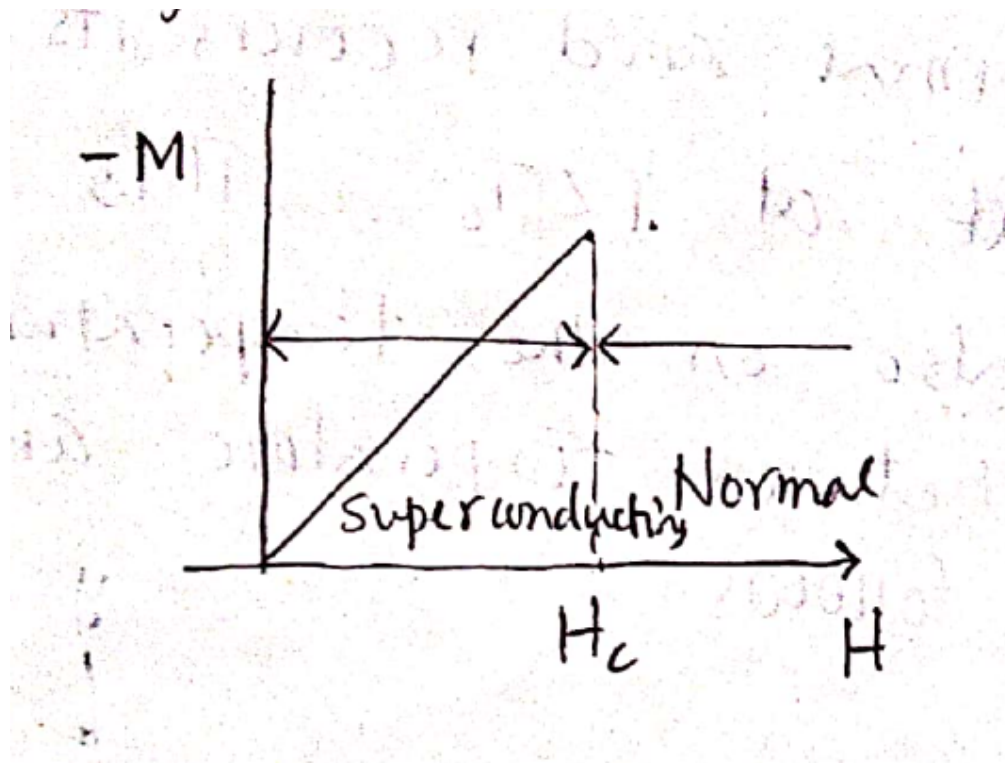 -M
Superconducting
Normal
Hc
H